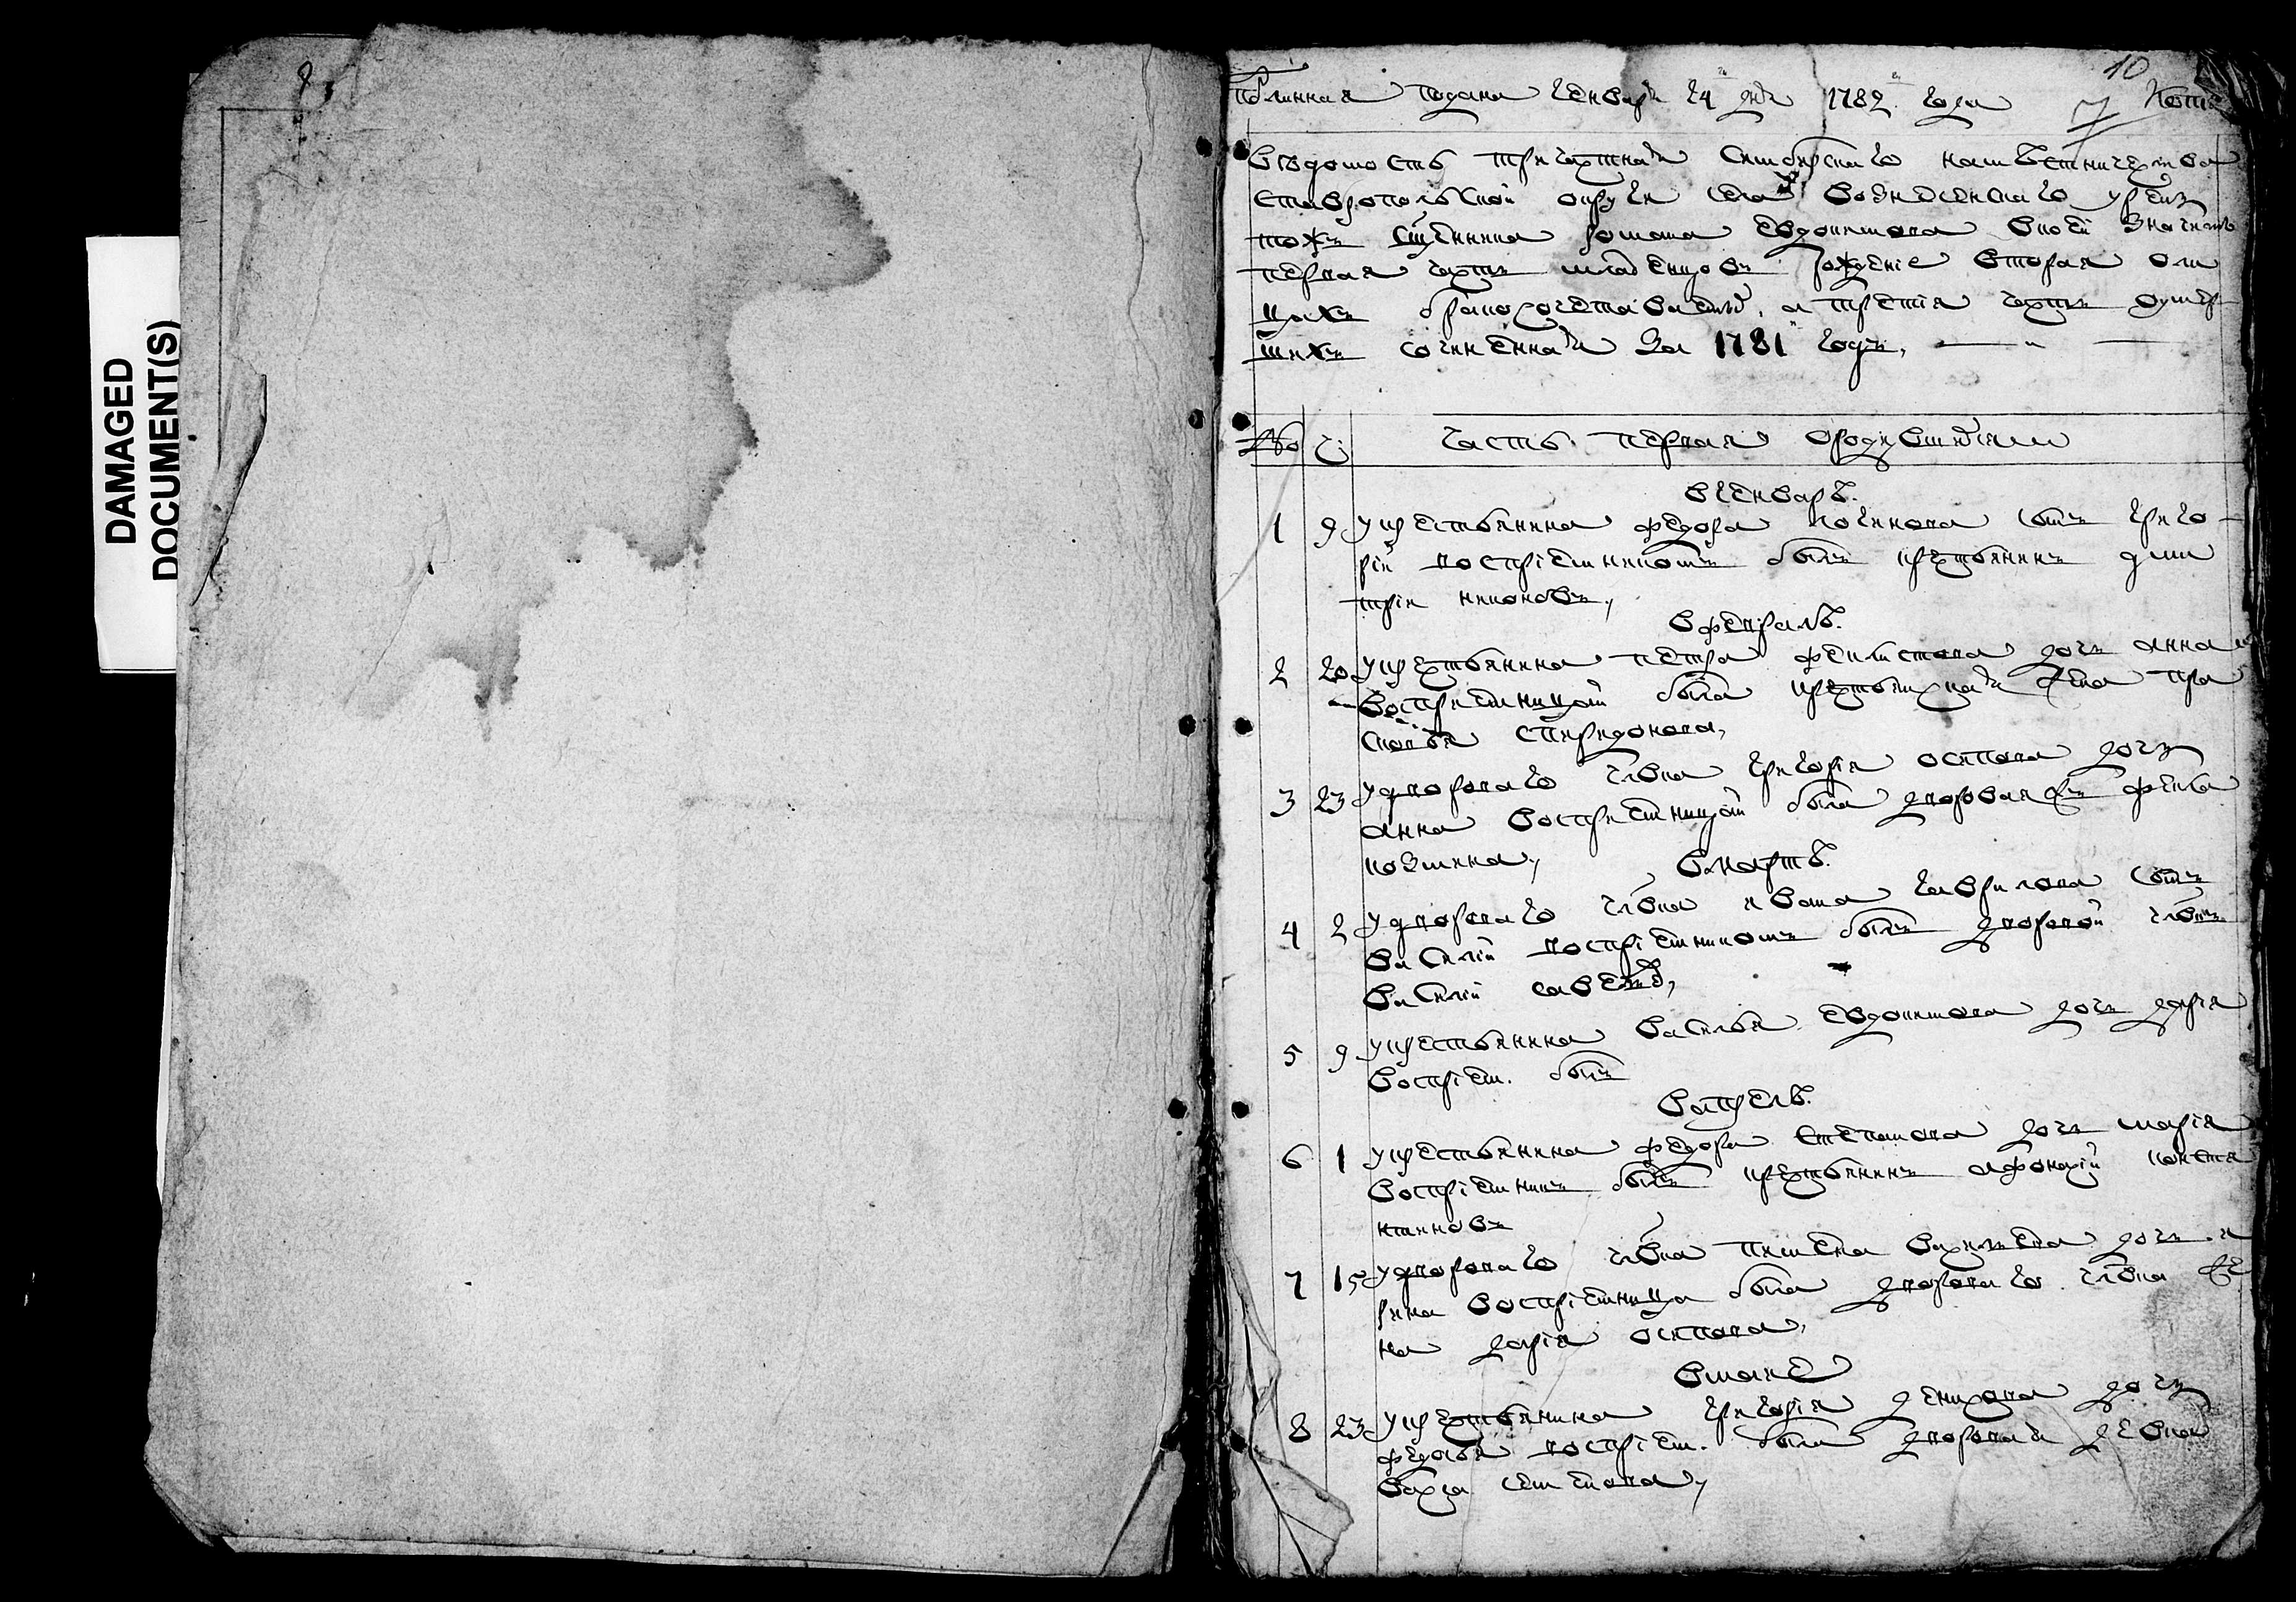 DAMAGED
DOCUMENT(S)
10
подана генваря 24 дня 1782 года
7
Ведомость Симбирскаго наместничества
Ставропольской округи села Вознесенскаго
тожъ священника Романа Евдокимова в коей значитъ
первая часть младенцовъ рождение вторая о
бракосочетавшихся, а третія часть о умер
шихъ сочиненная за 1781 годъ,
№ Ч:
Часть первая о родившихся
В генваре.
1 9 У крестьянина Федора Логинова сынъ Григо
рій восприемникомъ былъ крестьянинъ Дми
трій Никоновъ,
В феврале.
2 20 У крестьянина Петра Феклистова дочь Анна
восприемницой была крестьянская жена Пра
сковья Спиридонова,
3 23 У двороваго члвка Григорія Осипова дочь
Анна восприемницой была дворовая Фекла
Козмина,
В марте.
4 2 У двороваго члвка Ивана Гаврилова сынъ
Василій восприемникомъ былъ дворовой члвкъ
Василій
5 9 У крестьянина Василья Евдокимова дочь Дарья
восприем. былъ
В апреле.
6 1 У крестьянина Федора Степанова дочь Марія
восприемникъ былъ крестьянинъ Афонасій Конста
нтиновъ
7 15 У двороваго члвка Пимена Васильева дочь И
рина восприемница была двороваго члвка же
на Дарья Осипова,
В маие
8 23 У крестьянина Григорія Денисова дочь
Федосья восприем. была дворовая девка
Васса Семенова,